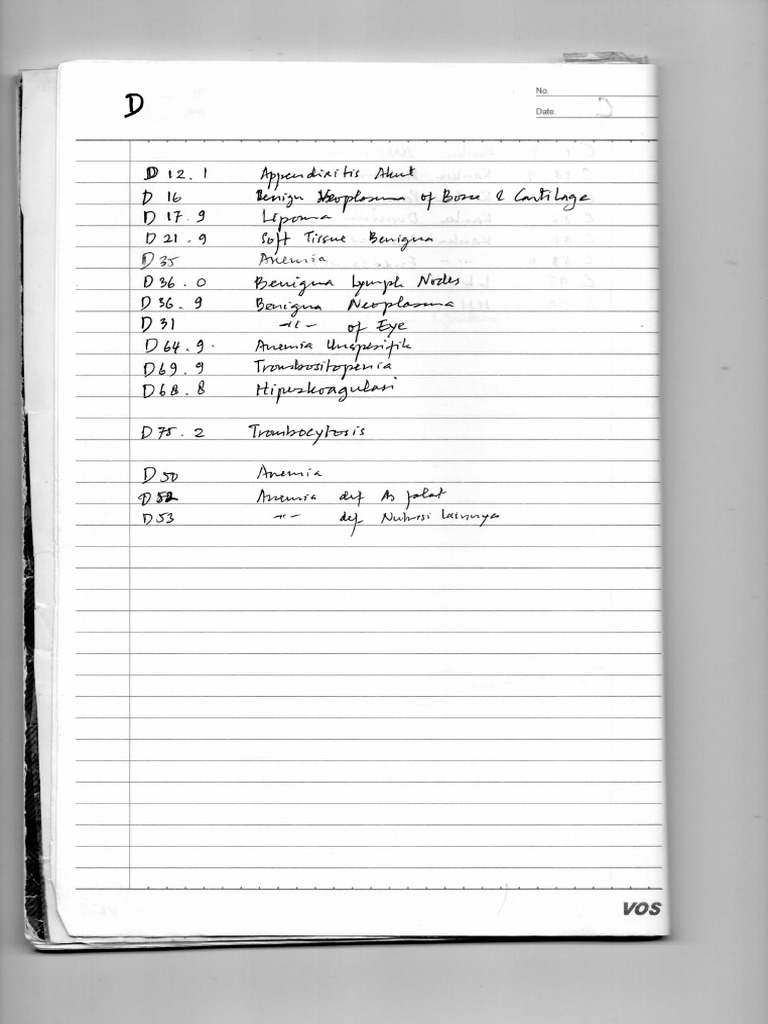 D
No.
Date.
D 12.1 Appendixitis Akut
D 16 Benign Neoplasma of Bone & Cartilage
D 17.9 Lipoma
D 21.9 Soft Tissue Benigna
D 35 Anemia
D 36.0 Benigna Lymph Nodes
D 36.9 Benigna Neoplasma
D 31 -"- of Eye
D 64.9. Anemia Unspesifik
D 69.9 Trombositopenia
D 68.8 Hiperkoagulasi
D 75.2 Trombocytosis
D 50 Anemia
D 52 Anemia def As folat
D 53 -"- def Nutrisi Lainnya
VOS